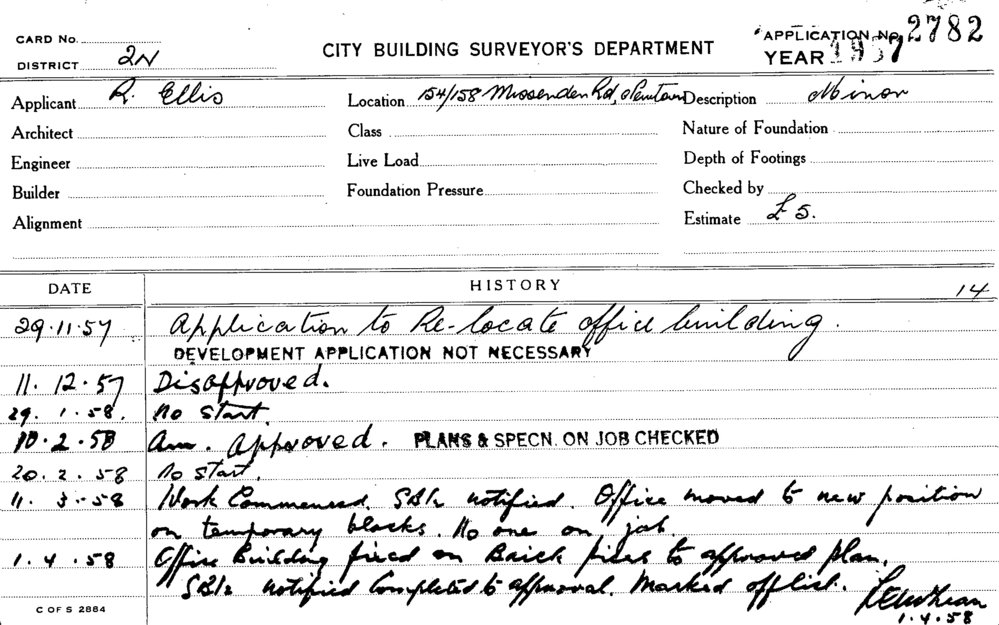 CARD No.
DISTRICT 2N
CITY BUILDING SURVEYOR'S DEPARTMENT
APPLICATION No. 2782
YEAR 1957
Applicant R. Ellis
Location 154/158 Missenden Rd, Newtown
Description Minor
Architect
Class
Nature of Foundation
Engineer
Live Load
Depth of Footings
Builder
Foundation Pressure
Checked by
Alignment
Estimate £5.
DATE HISTORY 14
29.11.57 Application to Re-locate office building.
DEVELOPMENT APPLICATION NOT NECESSARY
11.12.57 Disapproved.
29.1.58. No start.
10.2.58 Am. Approved. PLANS & SPECN. ON JOB CHECKED
20.2.58 No start.
11.3.58 Work Commenced. notified. Office moved to new position
on temporary blocks. No one on job
1.4.58 Office Building fixed on Brick piers to approved plan.
notified Completed to approval. Marked off list.
1.4.58
C OF S 2884